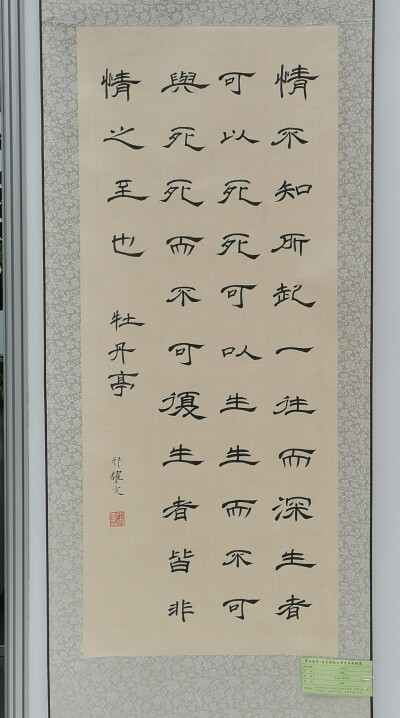 情不知所起一往而深生者
可以死死可以生生而不可
與死死而不可復生者皆非
情之至也
牡丹亭
耀文